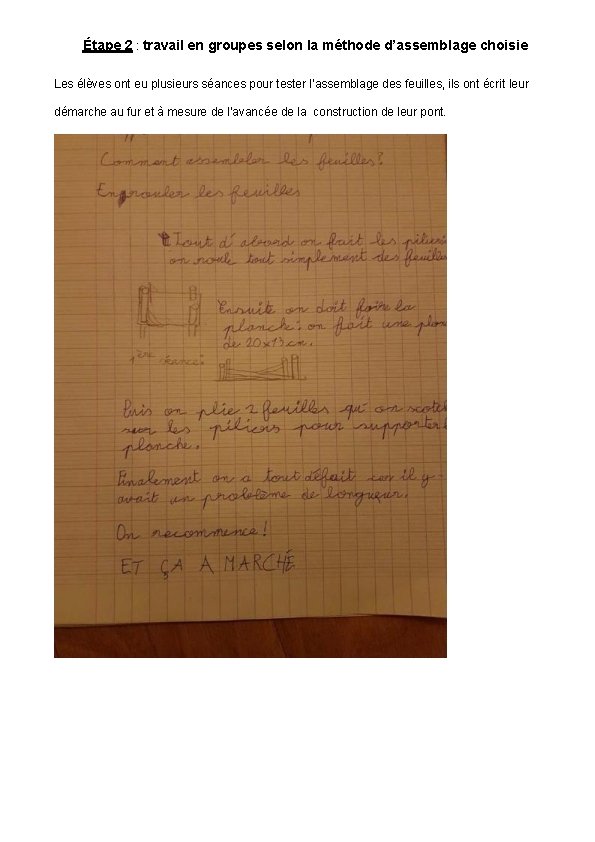 Étape 2 : travail en groupes selon la méthode d'assemblage choisie
Les élèves ont eu plusieurs séances pour tester l'assemblage des feuilles, ils ont écrit leur
démarche au fur et à mesure de l'avancée de la construction de leur pont.
Comment assembler les feuilles?
Enrouler les feuilles
Tout d'abord on fait les
on roule tout simplement des feuilles
Ensuite on doit faire la
planche : on fait une
de 20x13 cm.
1ère séance:
Puis on plie 2 feuilles qu'on
sur les piliers pour supporter
planche.
Finalement on a tout défait car il y
avait un problème de longueur.
On recommence!
ET ÇA A MARCHÉ